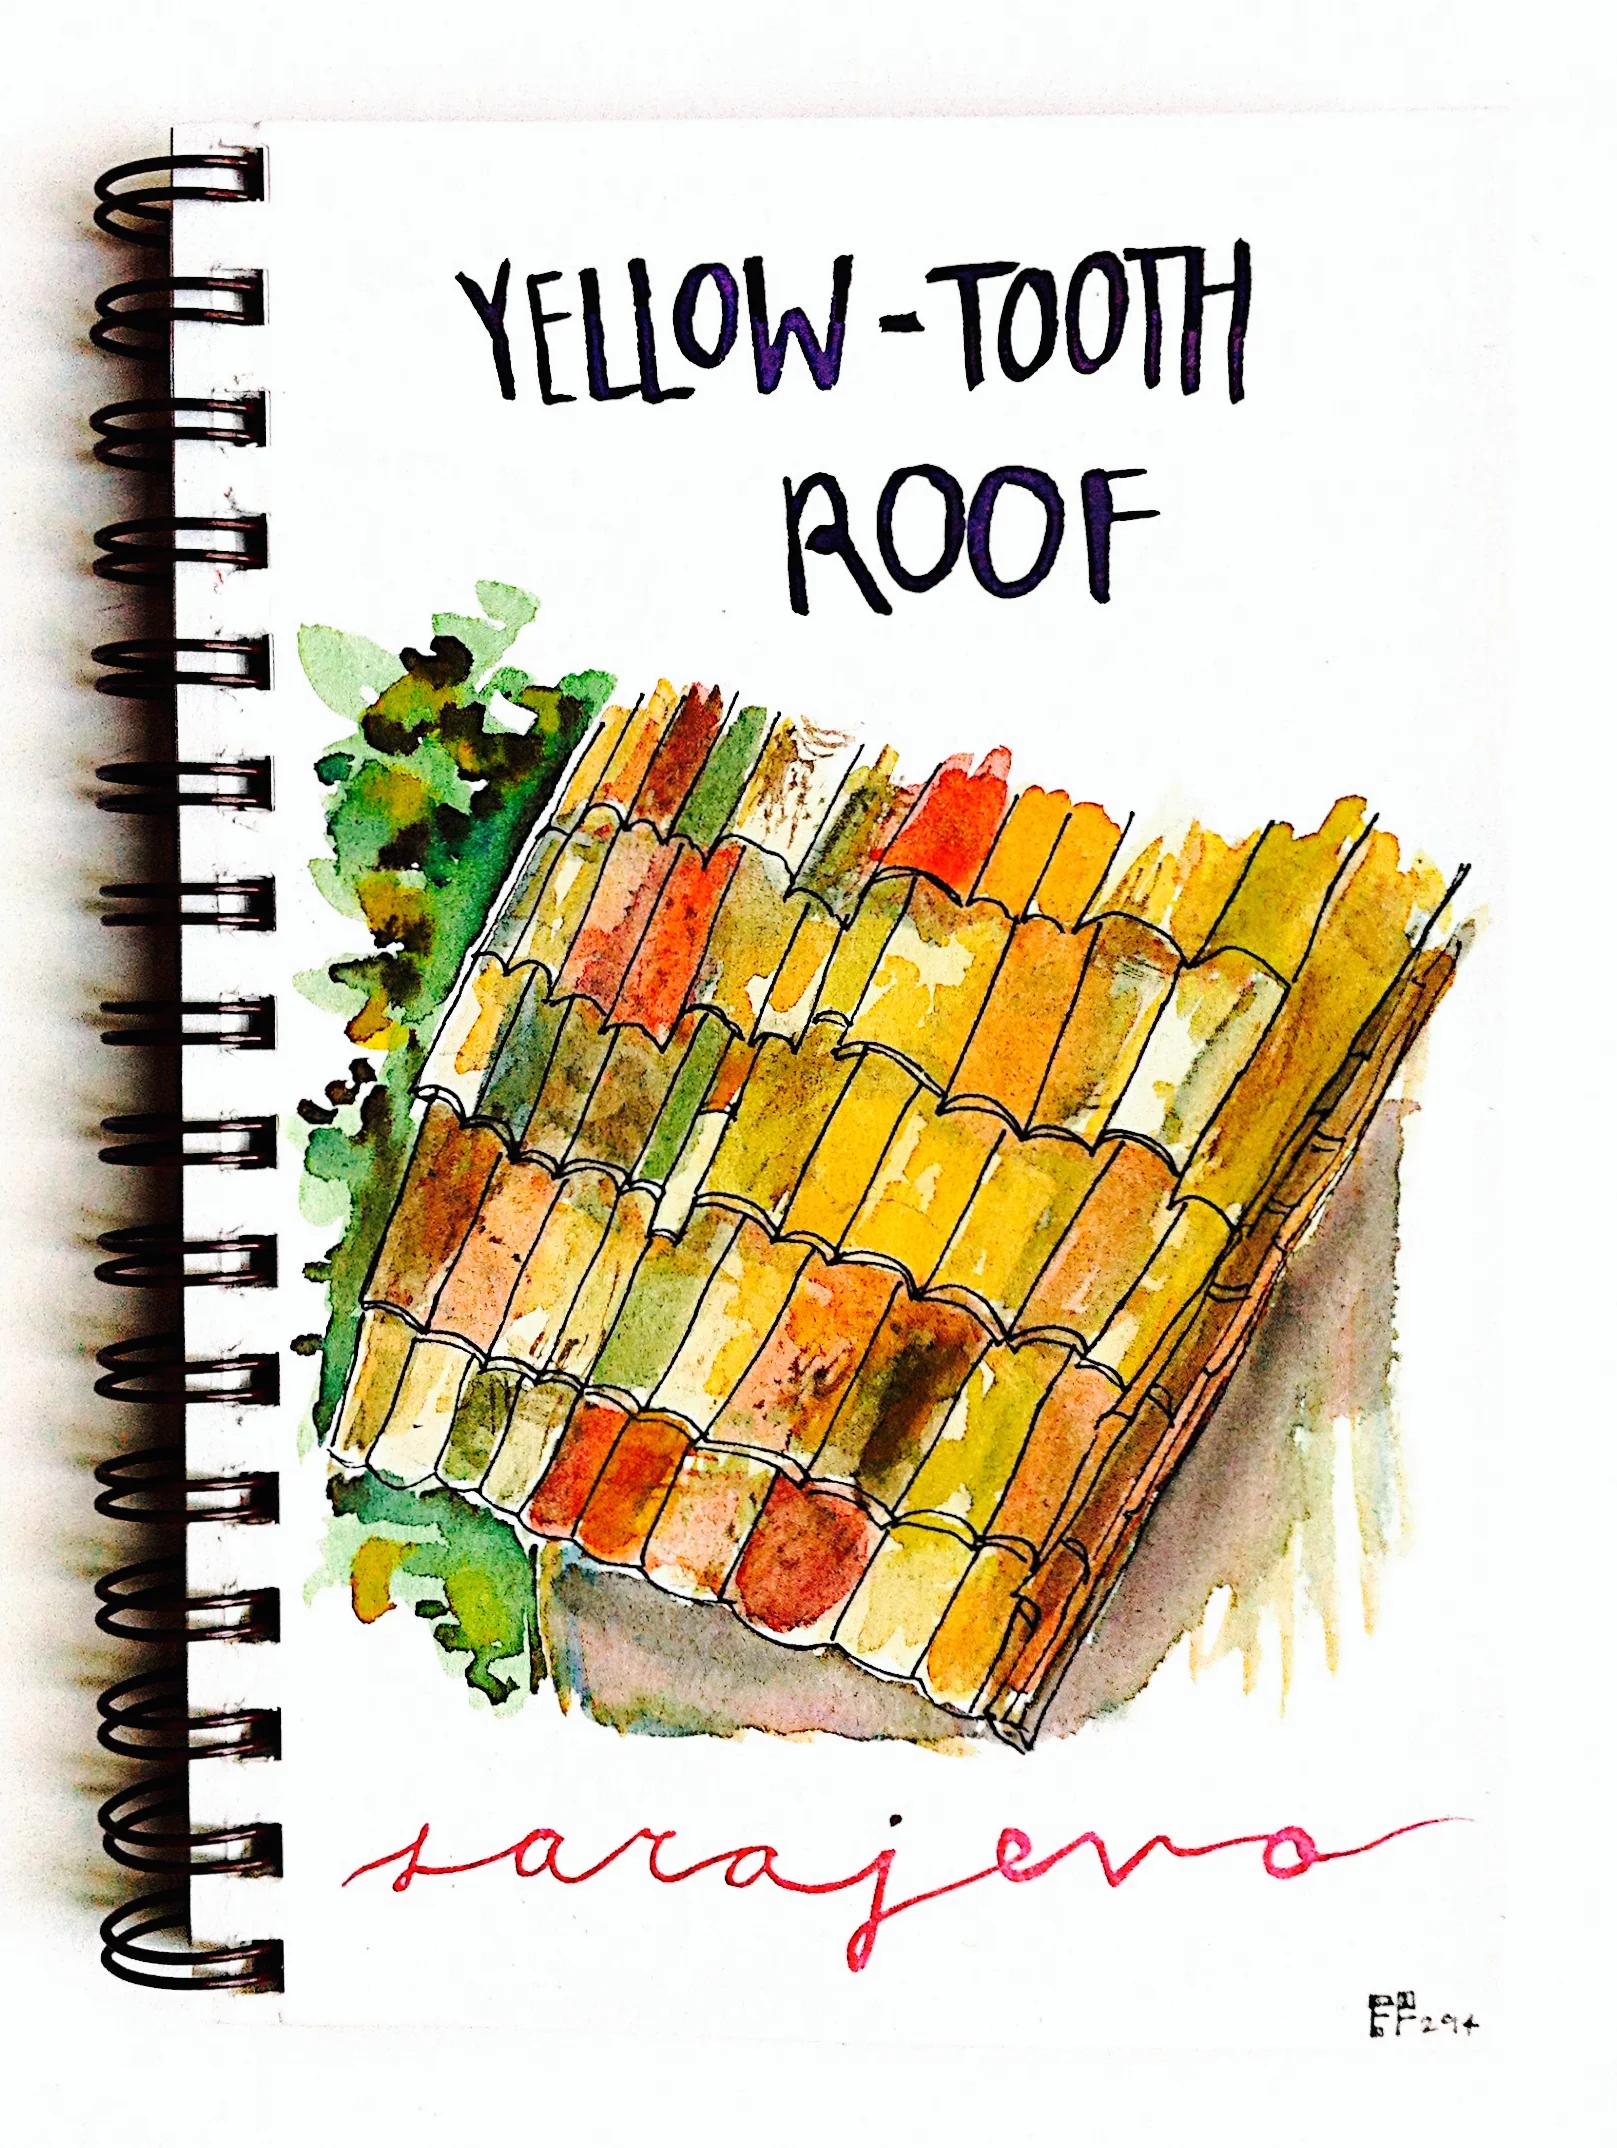 YELLOW-TOOTH
ROOF
sarajevo
294